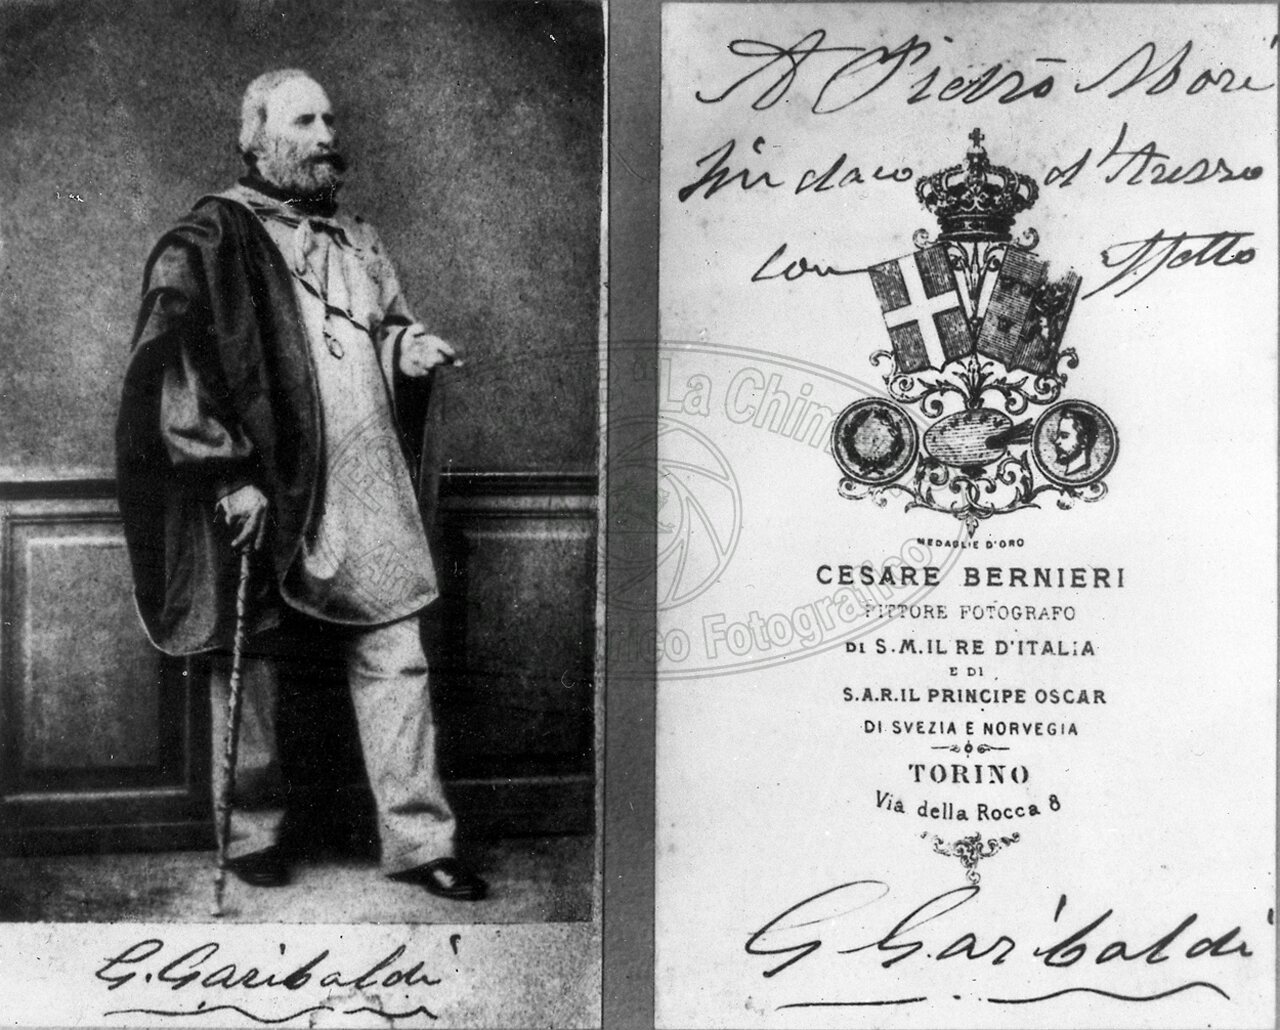 G. Garibaldi
A Pietro Mori
Sindaco d'Arezzo
con affetto
MEDAGLIE D'ORO
CESARE BERNIERI
PITTORE FOTOGRAFO
DI S.M. IL RE D'ITALIA
E DI
S.A.R. IL PRINCIPE OSCAR
DI SVEZIA E NORVEGIA
TORINO
Via della Rocca 8
G Garibaldi
La Chim
Fotografico